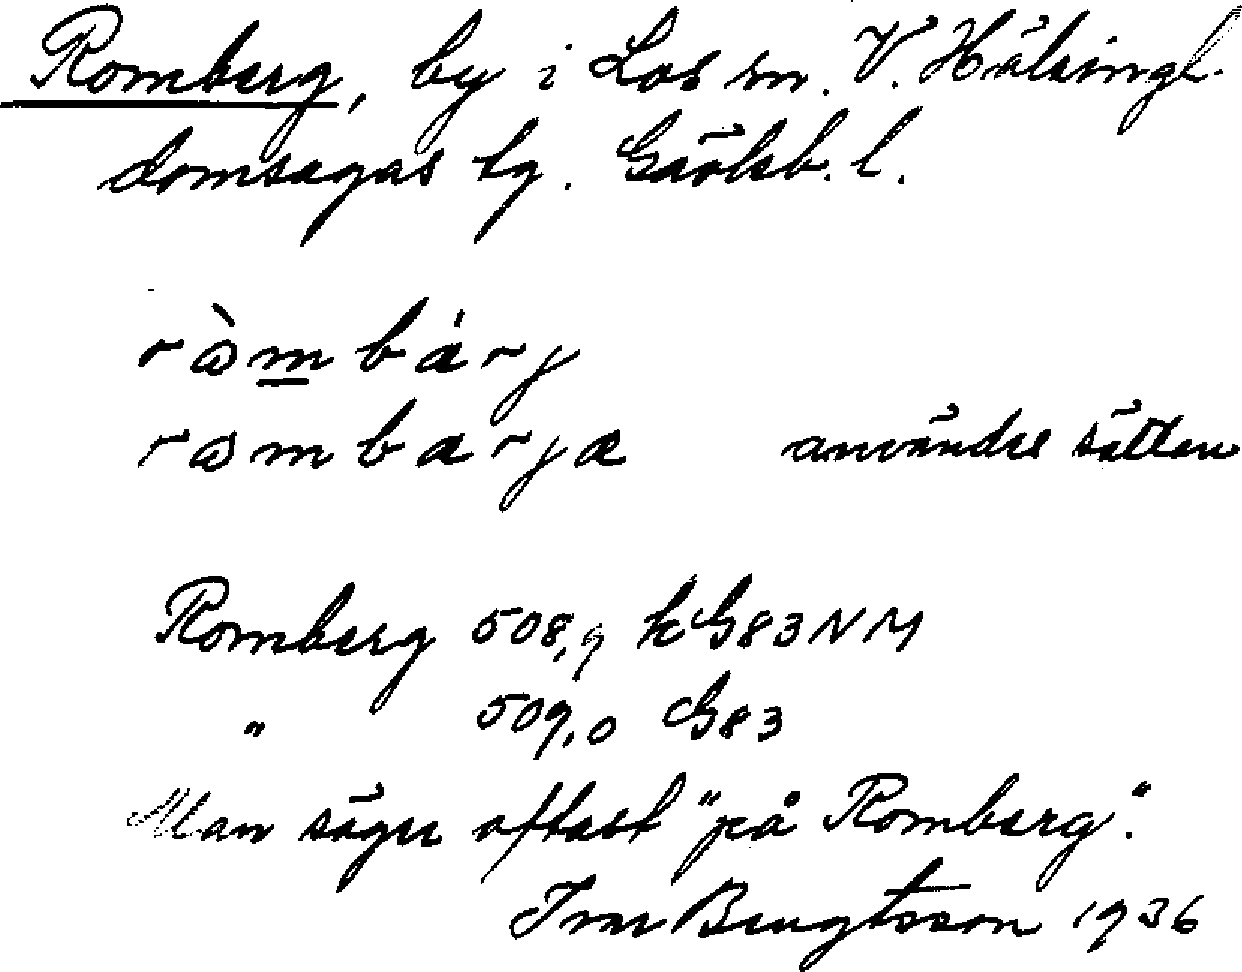 Romberg, by i Los sn. V. Hälsingl.
domsagas tg. Gävleb. l.
ròmbárj
rombarja användes sällan
Romberg 508,9 kG83NM
" 509,0 G83
Man säger oftast "på Romberg".
Ivar Bengtsson 1936